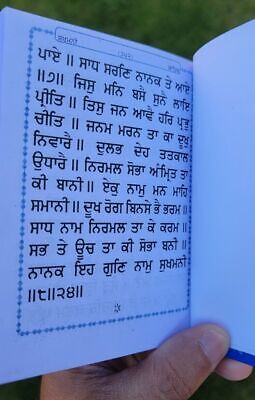 ਸੁਖਮਨੀ
ਪਾਏ ॥ ਸਾਧ ਸਰਣਿ ਨਾਨਕ ਤੇ ਆਏ
॥੭॥ ਜਿਸੁ ਮਨਿ ਬਸੈ ਸੁਨੈ ਲਾਇ
ਪ੍ਰੀਤਿ ॥ ਤਿਸੁ ਜਨ ਆਵੈ ਹਰਿ ਪ੍ਰਭੁ
ਚੀਤਿ ॥ ਜਨਮ ਮਰਨ ਤਾ ਕਾ ਦੂਖੁ
ਨਿਵਾਰੈ ॥ ਦੁਲਭ ਦੇਹ ਤਤਕਾਲ
ਉਧਾਰੈ ॥ ਨਿਰਮਲ ਸੋਭਾ ਅੰਮ੍ਰਿਤ ਤਾ
ਕੀ ਬਾਨੀ ॥ ਏਕੁ ਨਾਮੁ ਮਨ ਮਾਹਿ
ਸਮਾਨੀ ॥ ਦੂਖ ਰੋਗ ਬਿਨਸੇ ਭੈ ਭਰਮ ॥
ਸਾਧ ਨਾਮ ਨਿਰਮਲ ਤਾ ਕੇ ਕਰਮ ॥
ਸਭ ਤੇ ਊਚ ਤਾ ਕੀ ਸੋਭਾ ਬਨੀ ॥
ਨਾਨਕ ਇਹ ਗੁਣਿ ਨਾਮੁ ਸੁਖਮਨੀ
॥੮॥੨੪॥